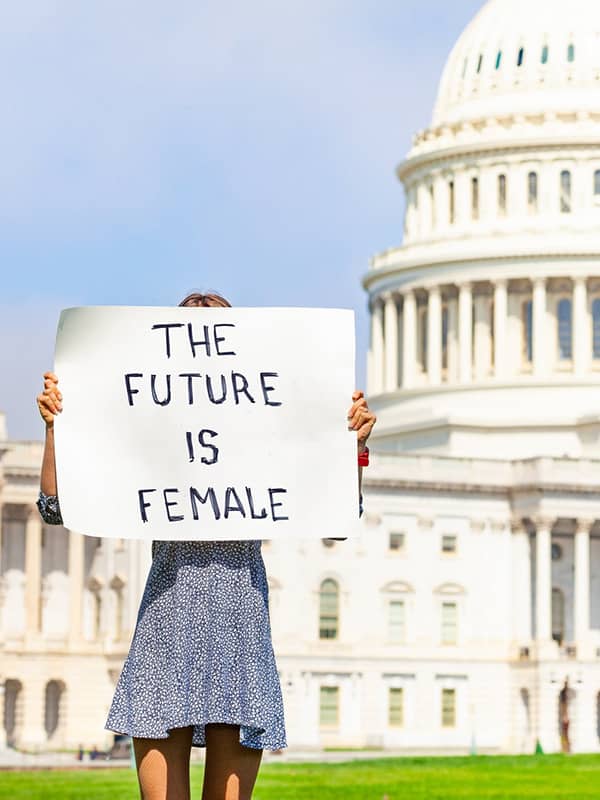 THE
FUTURE
IS
FEMALE